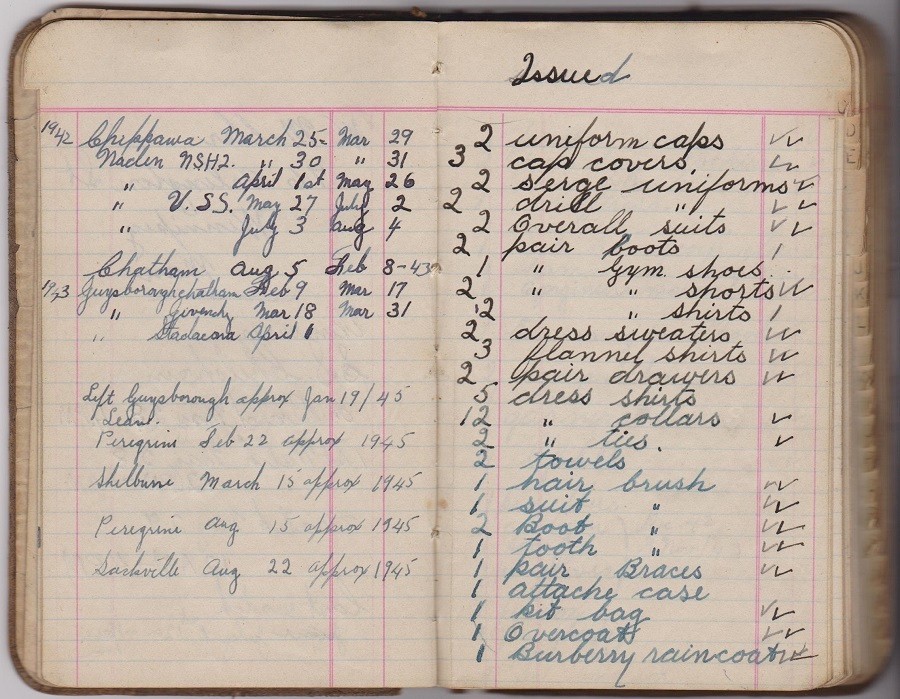 1942 Chippawa March 25- Mar 29
Naden NSHQ. " 30 " 31
" April 1st May 26
" V.S.S. May 27 July 2
" July 3 Aug 4
Chatham Aug 5 Feb 8-43
1943 Guysborough chatham Feb 9 Mar 17
" Givenchy Mar 18 Mar 31
" Stadacona April 1
Left Guysborough approx Jan 19/45
Leave.
Peregrine Feb 22 approx 1945
Shelburne March 15 approx 1945
Peregrine Aug 15 approx 1945
Sackville Aug 22 approx 1945
Issued
2 uniform caps
3 cap covers,
2 serge uniforms
2 drill "
2 Overall suits
2 pair boots
1 " Gym. shoes
2 " " shorts
2 " shirts
2 dress sweaters
3 flannel shirts
2 pair drawers
5 dress shirts
12 " collars
2 " ties.
2 towels
1 hair brush
1 suit "
2 Boot "
1 tooth "
1 pair Braces
1 attache case
1 kit bag
1 Overcoat
1 Burberry raincoat